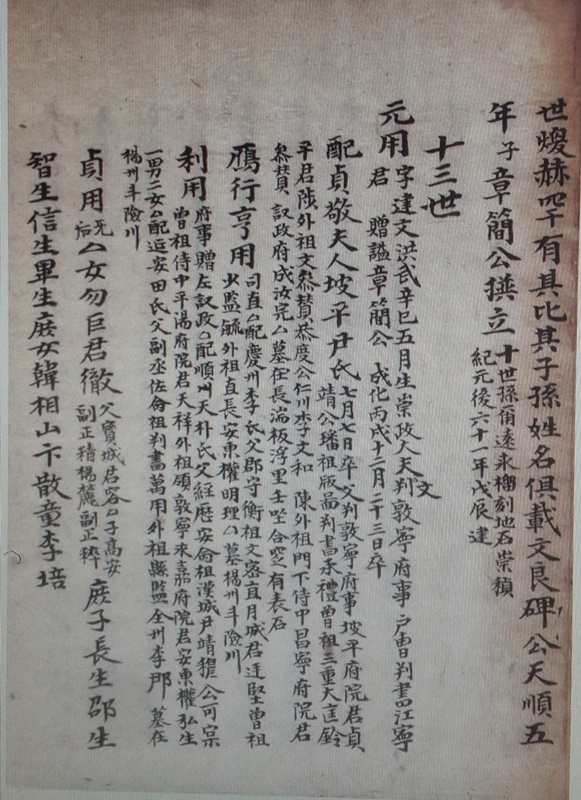 世赫罕有其比其子孫姓名俱載文良碑公天順五
年子章簡公撰立
十世孫甬遠永櫊刻地石崇禎
紀元後六十一年戊辰建
十三世
元用
字建文洪武辛巳五月生崇政大夫判敦寧府事戶曹判書江寧
君 贈諡章簡公 成化丙戌十二月二十三日卒
配貞敬夫人坡平尹氏
七月七日卒父判敦寧府事坡平府院君貞
靖公璠祖版圖判書承禮曾祖三重大匡鈴
平君陟外祖文參贊恭度公仁川李文和 陳外祖門下侍中昌寧府院君
參贊議政府成汝完厶墓在長湍板浮里壬坐合窆有表石
鴈行亨用
司直厶配慶州李氏父郡守衡祖文密直月城君廷堅曾祖
少監毓外祖直長安東權明理厶墓楊州斗險川
利用
府事贈左議政厶配順川天朴氏父經歷安命祖漢城尹靖公可宗
曾祖侍中平陽府院君天祥外祖領敦寧永嘉府院君安東權弘生
一男二女厶配延安田氏父副丞佐命祖判書萬用外祖縣監全州李郡 墓在
楊州斗險川
貞用
无后
厶女勿巨君徹
父寶城君容厶子高安
副正精楊麓副正粹
庶子長生邵生
智生信生畢生庶女韓相山卞散童李培